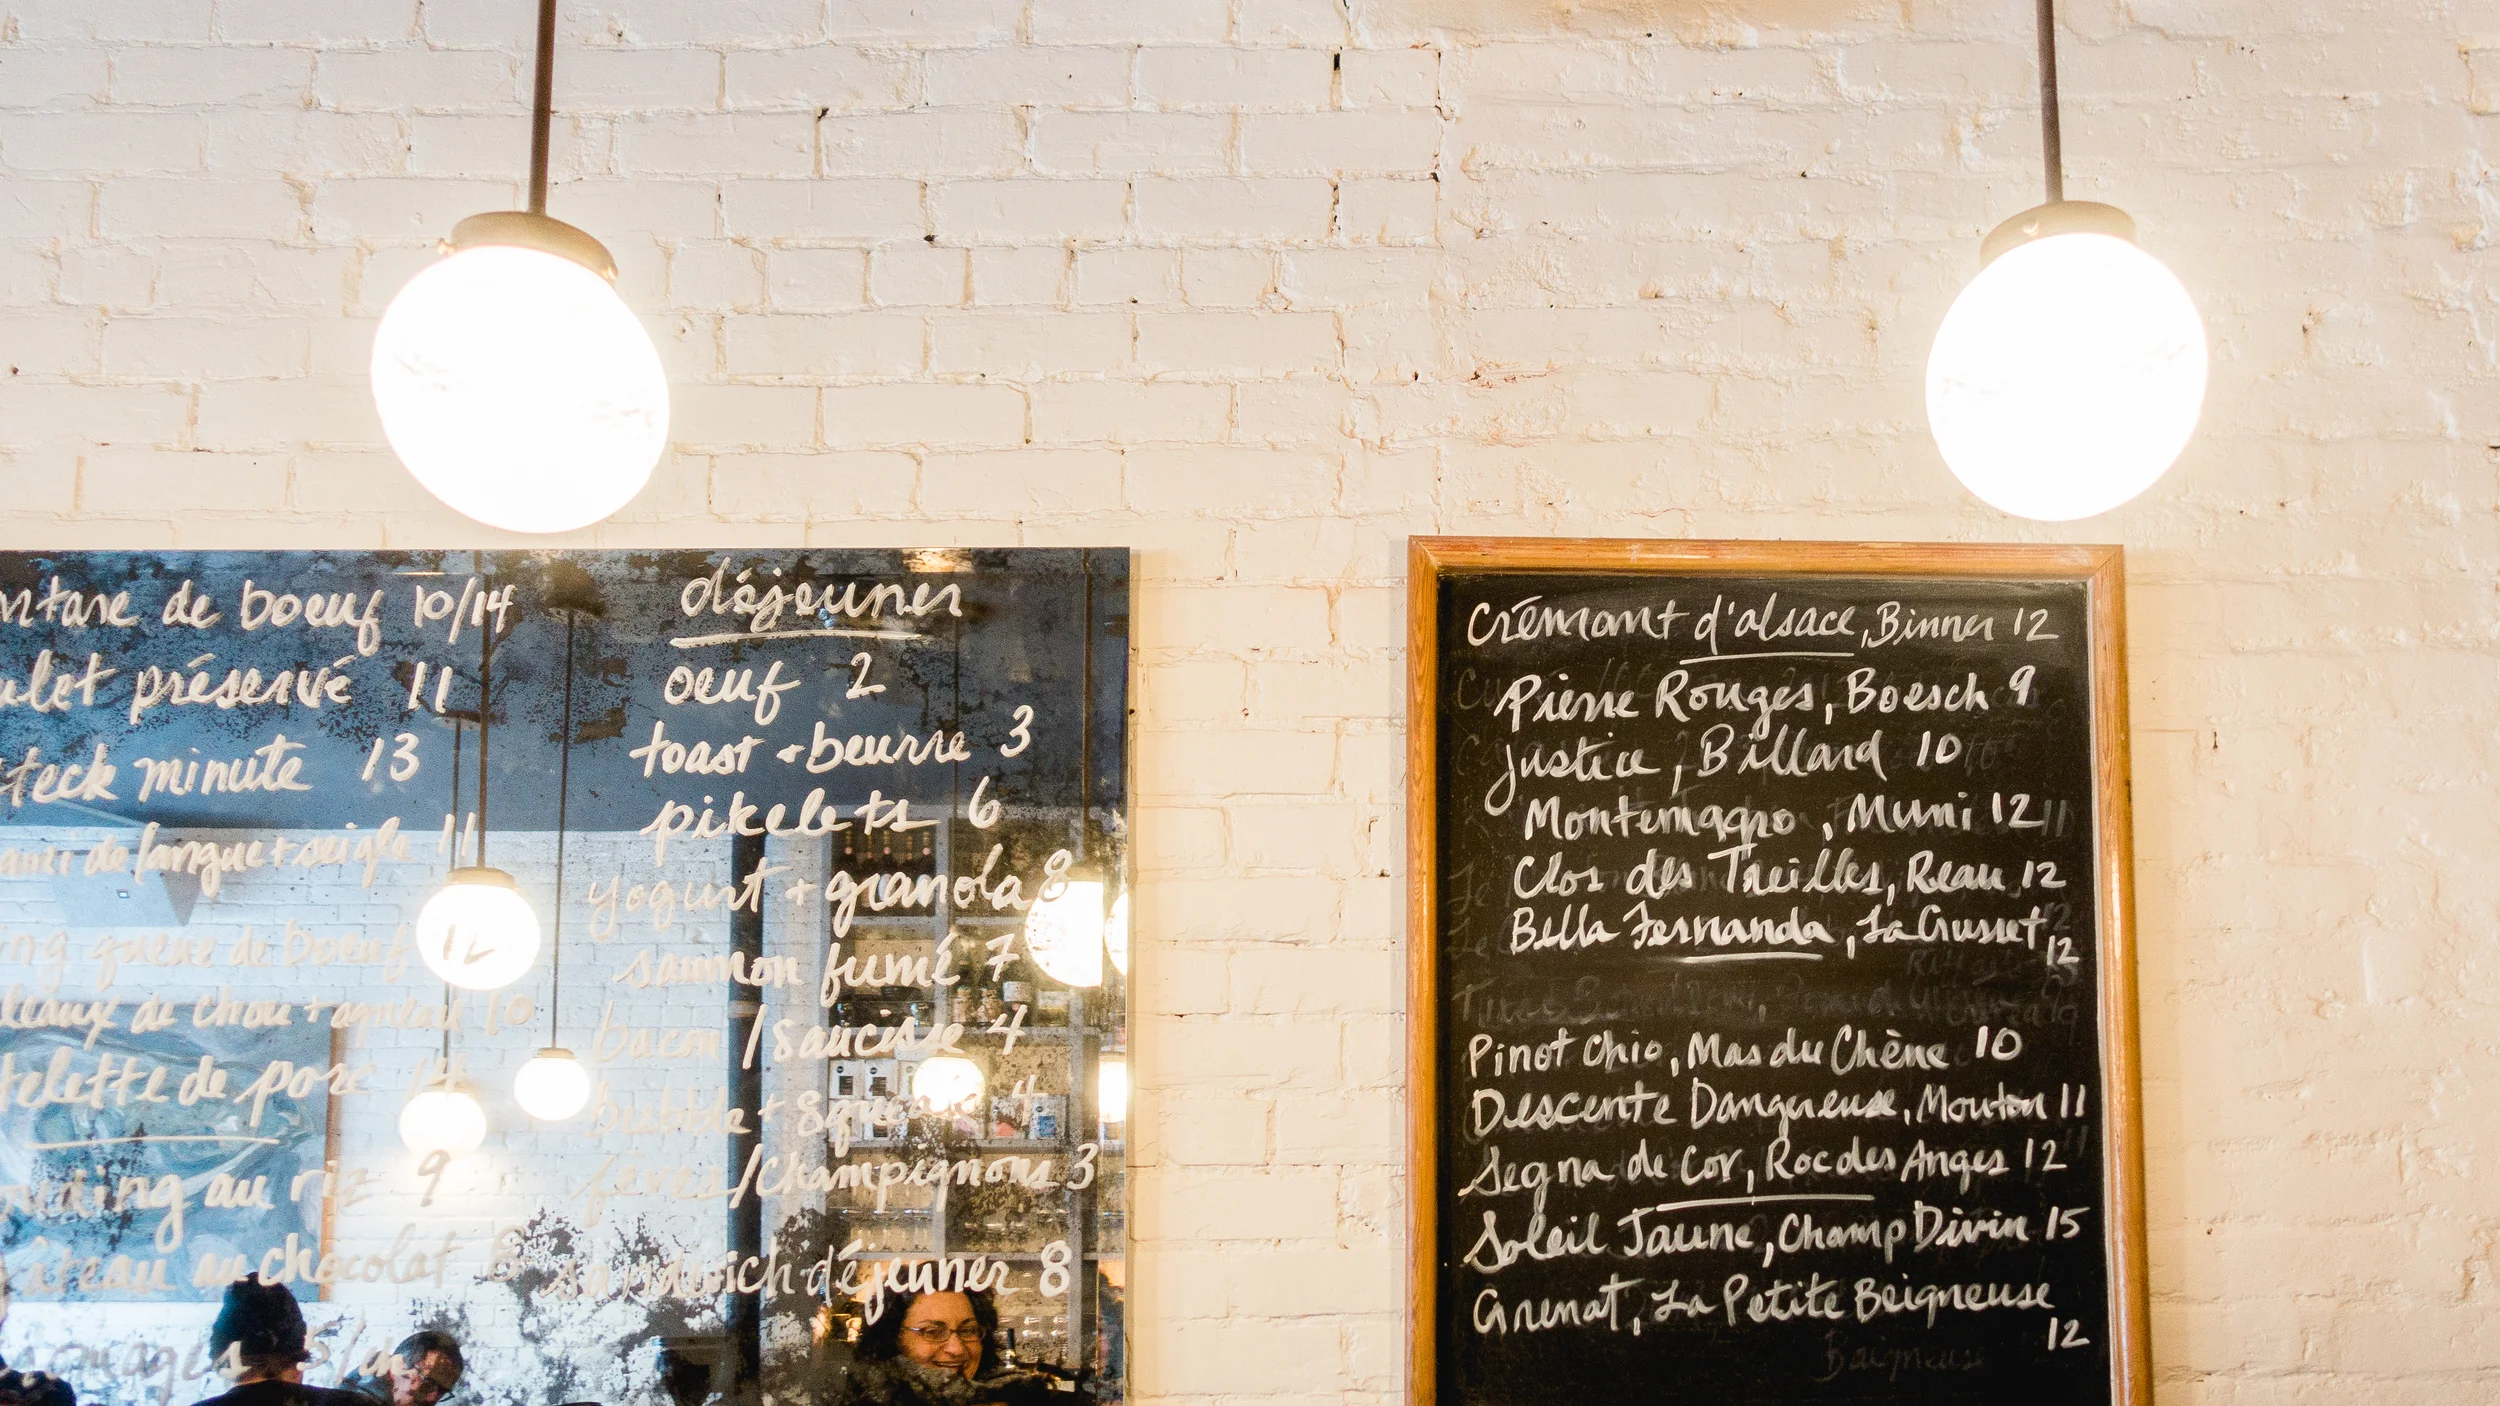 de boeuf 10/14
préservé 11
minute 13
de langue + seigle 11
queue de boeuf 12
de chou + agneau 10
de porc 14
au riz 9
au chocolat 8
5/ch
déjeuner
oeuf 2
toast + beurre 3
pikelets 6
yogurt + granola 8
saumon fumé 7
bacon / saucisse 4
bubble + 4
fèves/champignons 3
sandwich déjeuner 8
Crémant d'alsace, Binner 12
Pierre Rouges, Boesch 9
Justice, Billard 10
Montemagro, Muni 12
Clos des Treilles, Reau 12
Bella Fernanda, La Grusset
12
Pinot Ohio, Mas du Chêne 10
Descente Dangereuse, Mouton 11
Segna de Cor, Roc des Anges 12
Soleil Jaune, Champ Divin 15
Grenat, La Petite Beigneuse
12